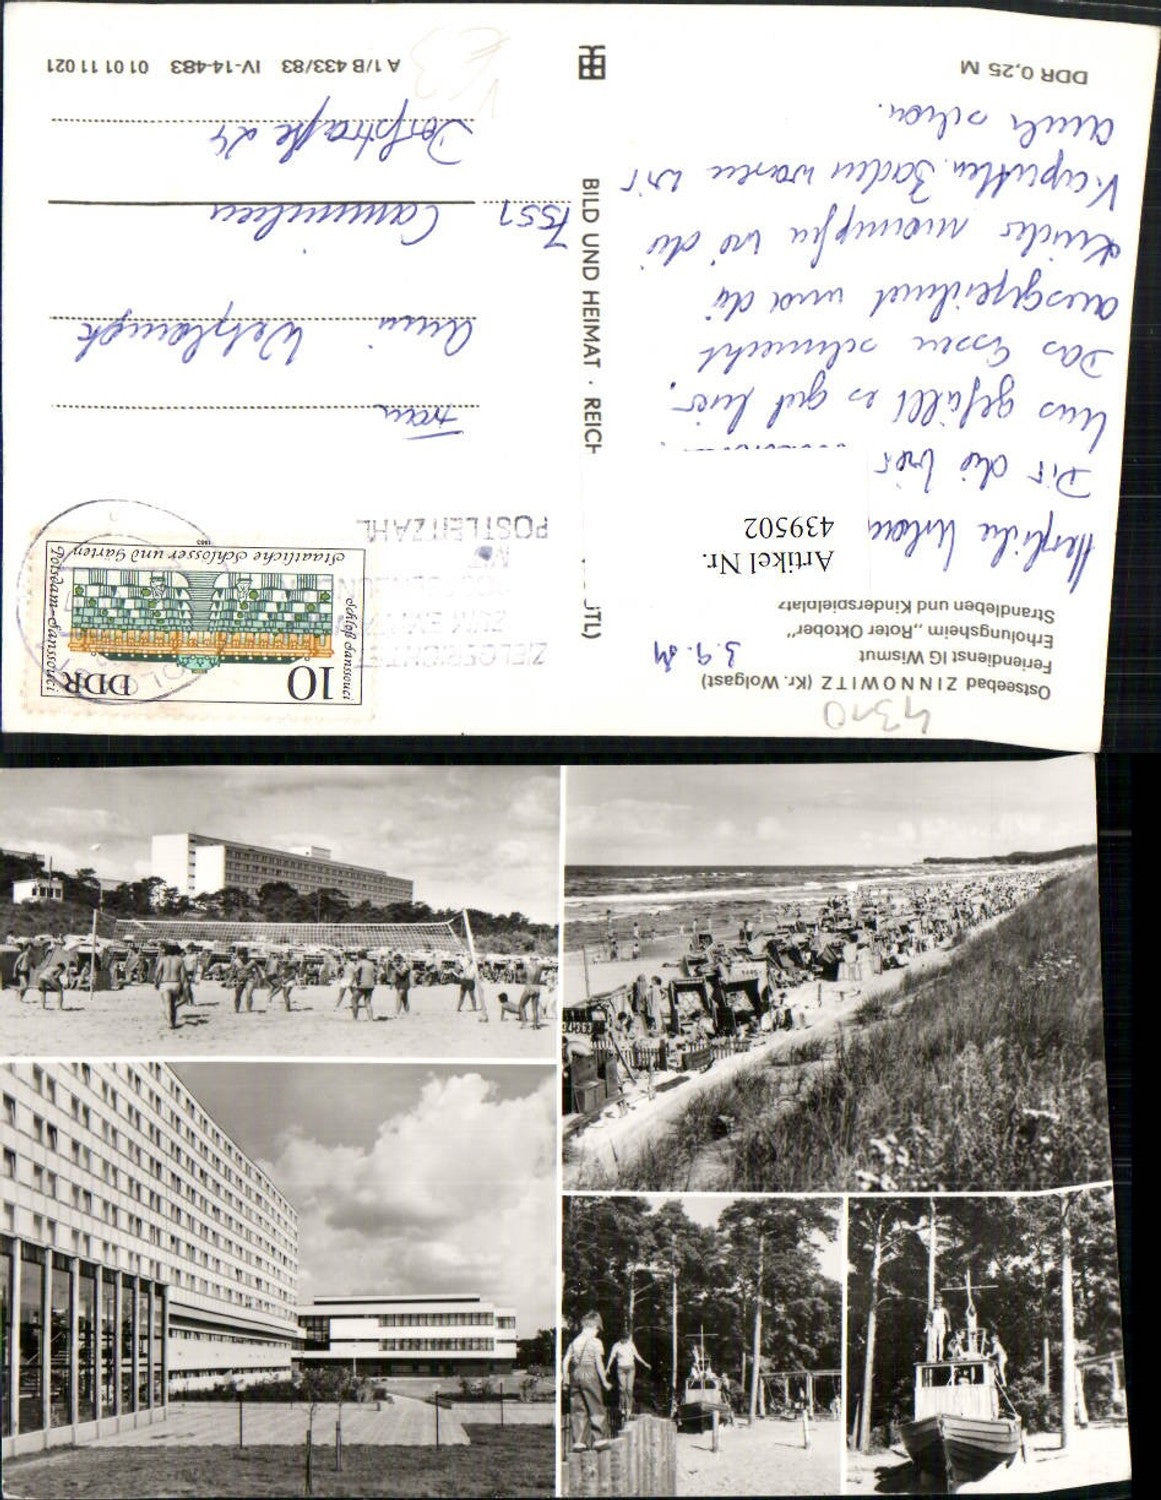 Ostseebad ZINNOWITZ (Kr. Wolgast)
Feriendienst IG Wismut
Erholungsheim „Roter Oktober“
Strandleben und Kinderspielplatz
4310
3.9.84
Herzliche
Dir die vier
Uns gefällt es gut hier.
Das Essen schmeckt
ausgezeichnet und die
Kinder
Baden waren wir
auch schon.
DDR 0,25 M
Artikel Nr.
439502
BILD UND HEIMAT · REICH
TL)
A 1/B 433/83 IV-14-483 01 01 11 021
ZIELGERICHTE
ZUM EM
MIT
POSTLEITZAHL
10 DDR
Schloß Sanssouci
Staatliche Schlösser und Gärten
Potsdam-Sanssouci
1983
Frau
7551
Dorfstraße 24
€3